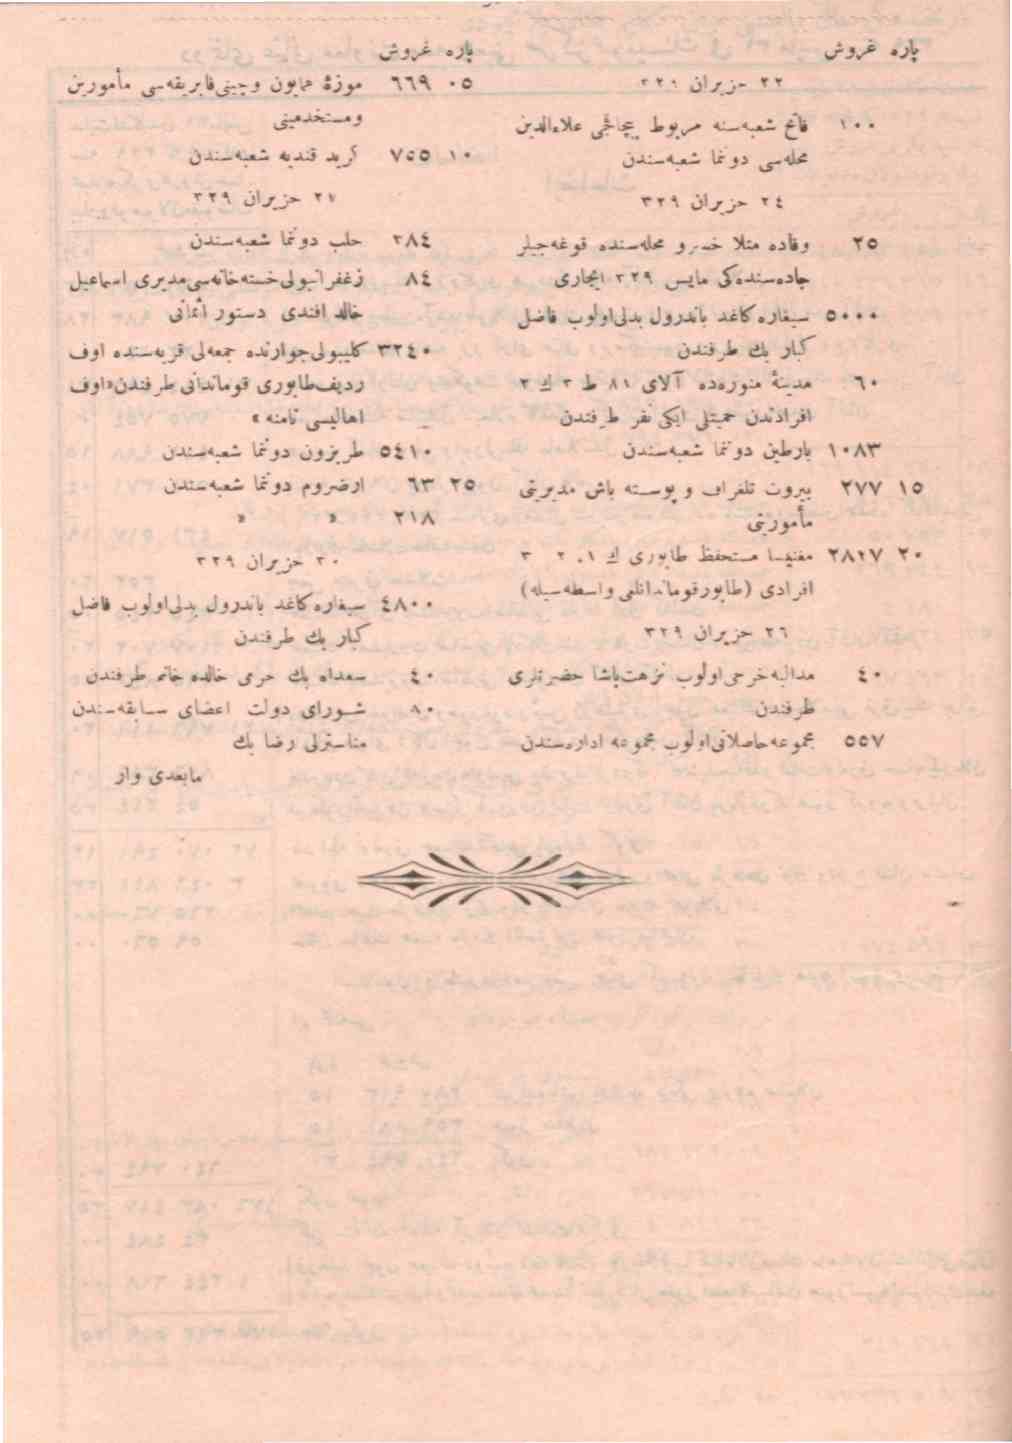 پاره غروش
٢٢ حزيران ٣٢٩
١٠٠ فاتح شعبه‌سنه مربوط بيچاقجی علاءالدين
محله‌سی دوننما شعبه‌سندن
٢٤ حزيران ٣٢٩
٢٥ وفاده منلا خسرو محله‌سنده قوغه‌جيلر
جاده‌سنده‌کی مايس ٣٢٩ ايجاری
٥٠٠٠ سيغاره کاغد باندرول بدلی اولوب فاضل
کبار بك طرفندن
٦٠ مدينۀ منوره‌ده آلای ٨١ ط ٣ ك ٢
افرادندن حميتلی ايکی نفر طرفندن
١٠٨٣ بارطين دوننما شعبه‌سندن
١٥ ٢٧٧ بيروت تلغراف و پوسته باش مديريتی
مأموريتی
٢٠ ٢٨٢٧ مغنيسا مستحفظ طابوری ك ١، ٢ ٣
افرادی (طابور قوماندانلغی واسطه‌سيله)
٢٦ حزيران ٣٢٩
٤٠ مداليه خرجی اولوب نزهت پاشا حضرتلری
طرفندن
٥٥٧ مجموعه حاصلاتی اولوب مجموعه اداره‌سندن
پاره غروش
٠٥ ٦٦٩ موزۀ همايون و چينی فابريقه‌سی مأمورين
ومستخدمينی
١٠ ٧٥٥ کريد قنديه شعبه‌سندن
٢٧ حزيران ٣٢٩
٣٨٤ حلب دوننما شعبه‌سندن
٨٤ زغفرانبولی خسته‌خانه‌سی مديری اسماعيل
خالد افندی دستور أثمانی
٣٢٤٠ کليبولی جوارنده جمعه‌لی قريه‌سنده اوف
رديف طابوری قوماندانی طرفندن «اوف
اهاليسی نامنه»
٥٤١٠ طربزون دوننما شعبه‌سندن
٢٥ ٦٣ ارضروم دوننما شعبه‌سندن
٢١٨ » »
٣٠ حزيران ٣٢٩
٤٨٠٠ سيغاره کاغد باندرول بدلی اولوب فاضل
کبار بك طرفندن
٤٠ سعدالله بك حرمی خالده خانم طرفندن
٨٠ شورای دولت اعضای سابقه‌سندن
مناسترلی رضا بك
مابعدی وار